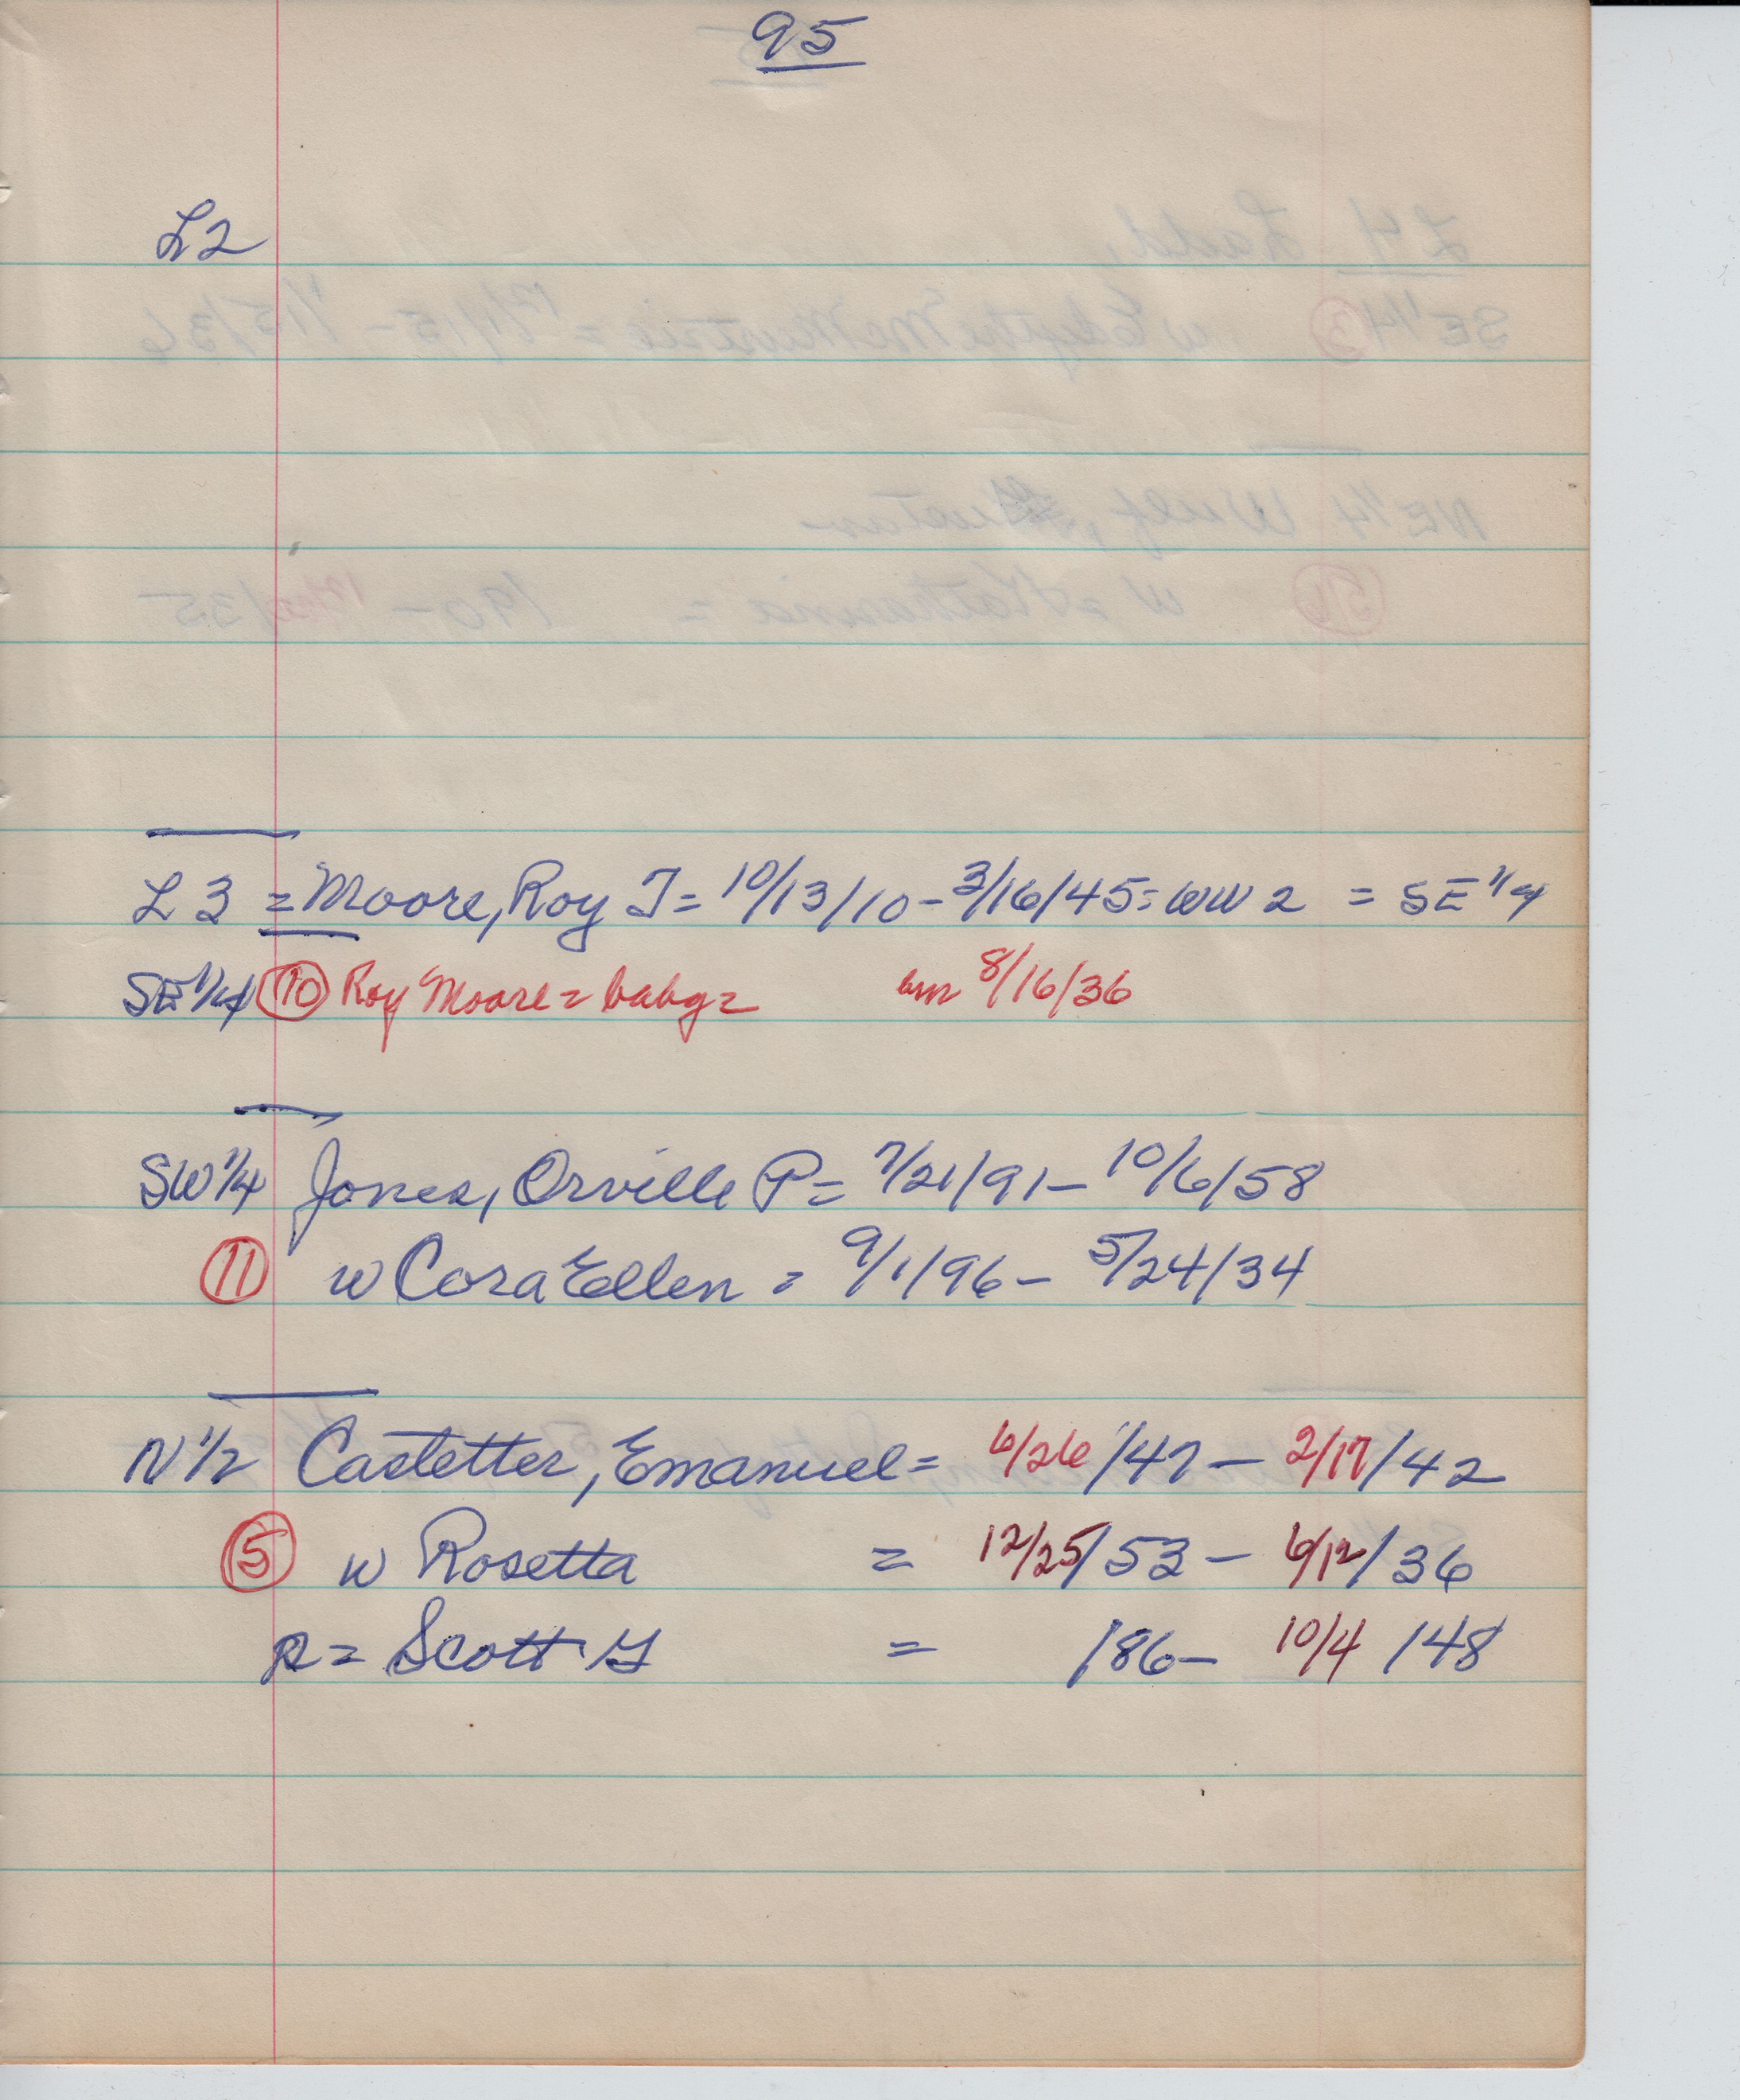 95
L2
L 3 = Moore, Roy T = 10/13/10 - 3/16/45 = WW 2 = SE 1/4
SE 1/4 (10) Roy Moore = baby = bur 8/16/36
SW 1/4 Jones, Orville P = 7/21/91 - 10/6/58
(11) w Cora Ellen = 9/1/96 - 5/24/34
N 1/2 Castetter, Emanuel = 6/26/47 - 2/17/42
(5) w Rosetta = 12/25/53 - 6/12/36
= Scott = /86 - 10/4/48